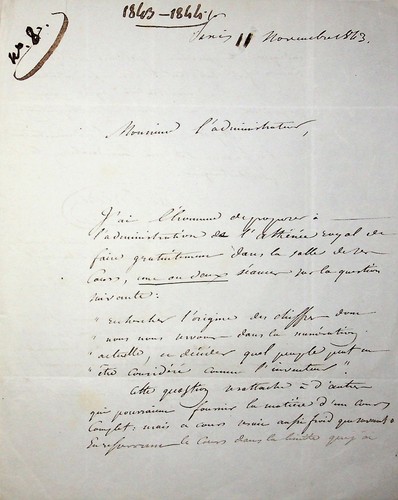 1843-1844
n°. 8.
Paris 11 Novembre 1843.
Monsieur l'administrateur,
J'ai l'honneur de proposer à
l'administration de l'athénée royal de
faire gratuitement dans la salle de ses
Cours, une ou deux séances sur la question
suivante :
" rechercher l'origine des chiffres dont
" nous nous servons dans la numération
" actuelle, et décider quel peuple peut en
" être considéré comme l'inventeur "
Cette question se rattache à d'autres
qui pourraient fournir la matière d'un cours
Complet; mais ce cours serait aussi froid que
En resserrant le Cours dans la limite que j'ai